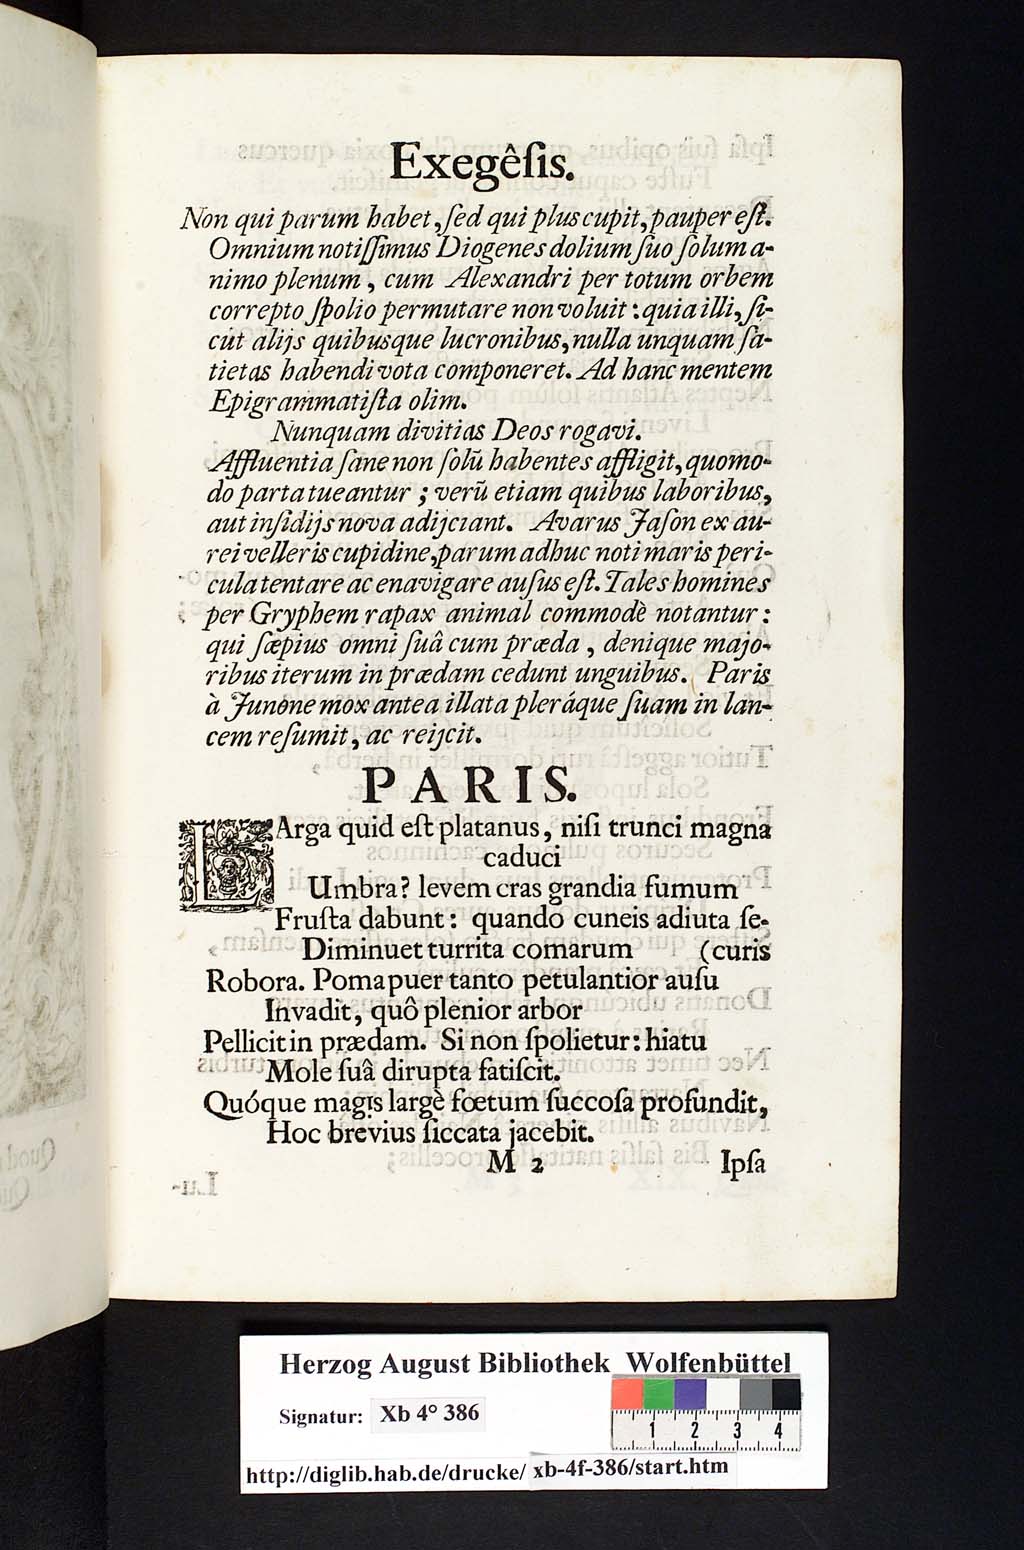 Exegêſis.
Non qui parum habet, ſed qui plus cupit, pauper eſt.
Omnium notiſſimus Diogenes dolium ſuo ſolum a-
nimo plenum, cum Alexandri per totum orbem
correpto ſpolio permutare non voluit: quia illi, ſi-
cút alijs quibusque lucronibus, nulla unquam ſa-
tietas habendi vota componeret. Ad hanc mentem
Epigrammatiſta olim.
Nunquam divitias Deos rogavi.
Affluentia ſane non ſolũ habentes affligit, quomo-
do parta tueantur; verũ etiam quibus laboribus,
aut inſidijs nova adijciant. Avarus Jaſon ex au-
rei velleris cupidine, parum adhuc noti maris peri-
cula tentare ac enavigare auſus eſt. Tales homines
per Gryphem rapax animal commodè notantur:
qui ſæpius omni ſuâ cum præda, denique majo-
ribus iterum in prædam cedunt unguibus. Paris
à Junone mox antea illata pleráque ſuam in lan-
cem reſumit, ac reijcit.
PARIS.
LArga quid eſt platanus, niſi trunci magna
caduci
Umbra? levem cras grandia fumum
Fruſta dabunt: quando cuneis adiuta ſe-
Diminuet turrita comarum (curis
Robora. Poma puer tanto petulantior auſu
Invadit, quô plenior arbor
Pellicit in prædam. Si non ſpolietur: hiatu
Mole ſuâ dirupta fatiſcit.
Quóque magis largè fœtum ſuccoſa profundit,
Hoc brevius ſiccata jacebit.
M 2 Ipſa
Herzog August Bibliothek Wolfenbüttel
Signatur: Xb 4° 386
1 2 3 4
http://diglib.hab.de/drucke/ xb-4f-386/start.htm